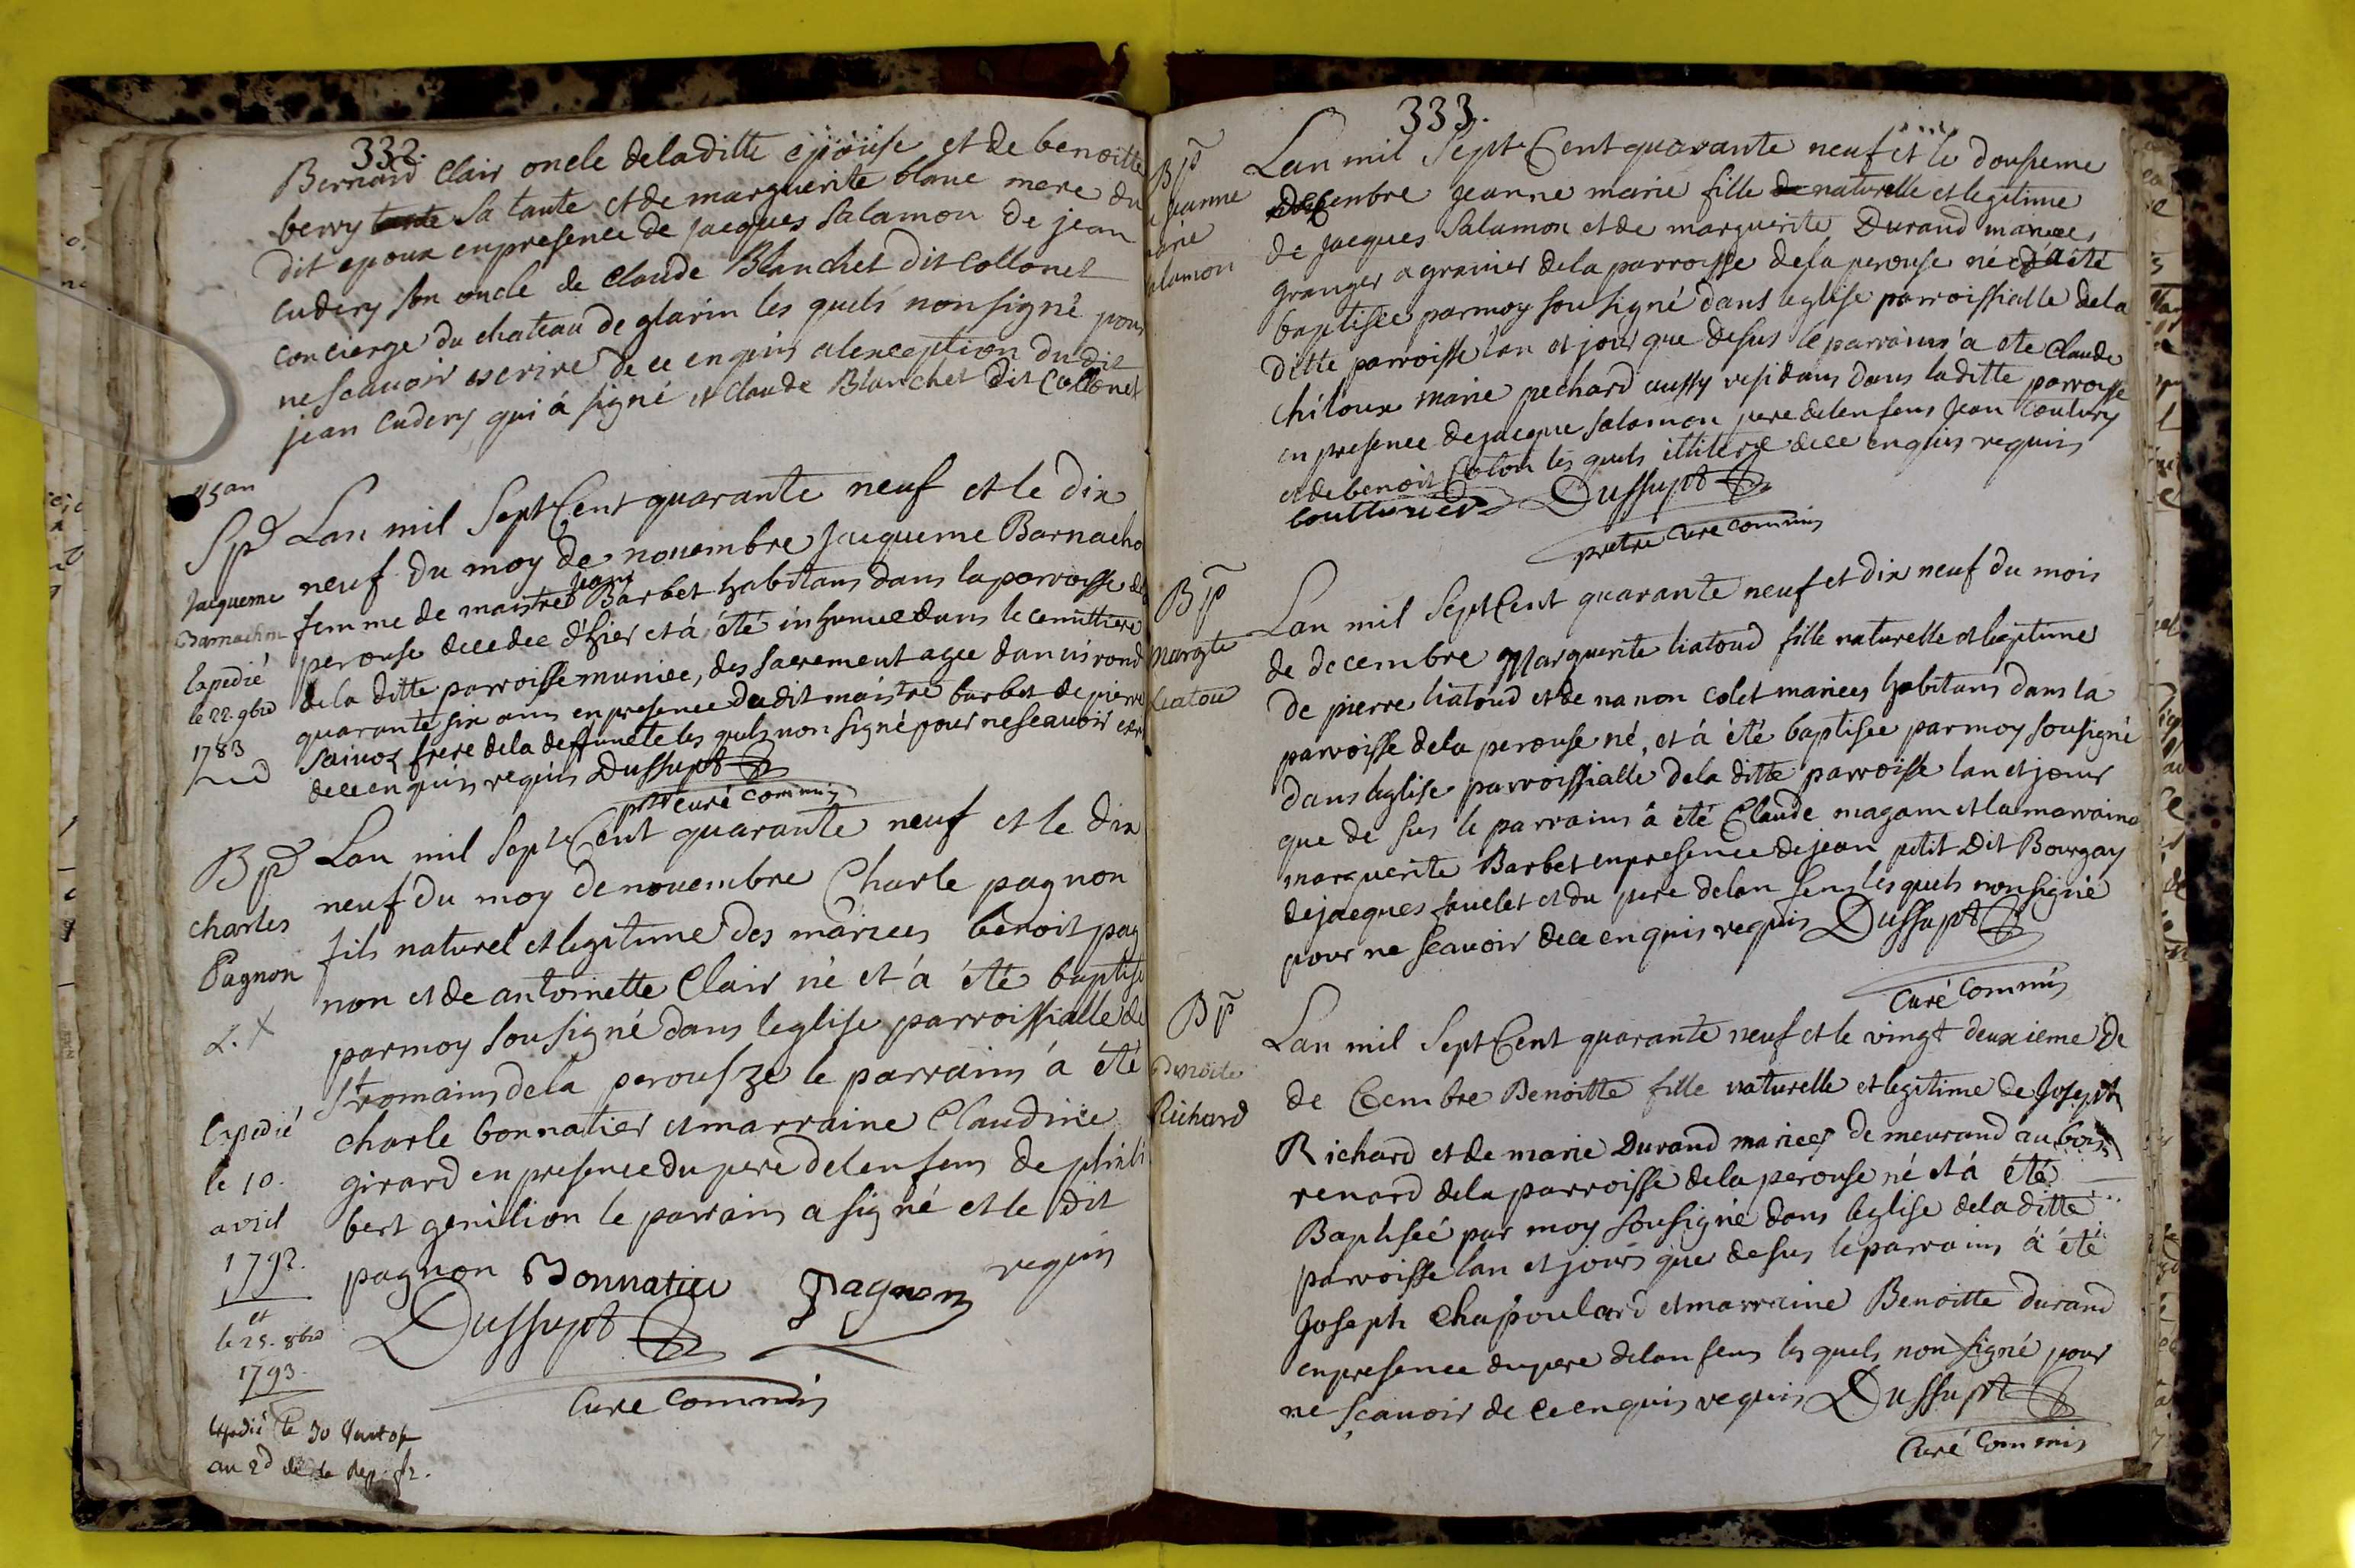 332.
Bernard Clair oncle deladitte epouse et de benoitte
berry tante sa tante et de marguerite blanc mere du
dit epoux enpresence de jacques salamon de jean
cudery son oncle de claude Blanchet dit collonel
concierge du chateau de glarin les quels nonsigné pour
ne scauoir escrire de ce enquis alexception dudit
jean cudery qui á signé et claude Blanchet dit Collonel
Spd
Jaqueme
Barnachon
Expedié
le 22. 9bre
1783
Lan mil SeptCent quarante neuf et le dix
neuf du moy de nouembre Jaqueme Barnacho
femme de maistre jean Barbet habitans dans la parroisse de
perouse decedee d'hier et á été inhumee dans le cemittiere
dela ditte parroisse muniee, des sacrement agee danuiron
quarante six ans en presence du dit maistre barbet de pierre
sainos frere dela deffuncte les quels non signé pour nescauoir escr
dece enquis requis Dussupt
ptre curé commis
Bpd
charles
Pagnon
2. X
Expedié
le 10.
avril
1792.
et
le 25. 8bre
1793.
Expedié le 30 Vantose
an 2d de la Rep. fr.
Lan mil SeptCent quarante neuf et le dix
neuf du moy denouembre Charle pagnon
fils naturel et legitime des mariees benoit pag
non et de antoinette Clair né et á été baptisé
parmoy sousigné dans leglise parroissialle de
St romains dela perousze le parrains á été
charle bonnatier et marraine Claudine
girard en presence du pere delenfens de phili
bert genilion le parrains a signé et le dit
pagnon Bonnatier pagnon requis
Dussupt
Cure commis
333.
Bp
Jeanne
marie
salamon
Lan mil SeptCent quarante neuf et le dousieme
decembre jeanne marie fille de naturelle et legitime
de jacques Salamon et de marguerite Durand mariees
granger a granier dela parroisse dela perouse né et á été
baptisée parmoy sousigné dans leglise parroissialle dela
ditte parroisse lan et jour que desus le parrains á ete claude
chiloux marie pechard aussy residans dans laditte parroisse
en presence dejacque salamon pere delenfens jean coulury
et debenoit Coton les quels illitere dece enquis requis
coutturier Dussupt
pretre cure commis
Bp
Margte
Liatou
Lan mil SeptCent quarante neuf et dix neuf du mois
de decembre Marguerite liatoud fille naturelle et legitime
de pierre liatoud et de nanon colet mariees habitans dans la
parroisse dela perouse né, et á été baptisée parmoy sousigné
dans leglise parroissialle dela ditte parroisse lan et jour
que de sus le parrains á été Claude magam et la marraine
marguerite Barbet enpresence dejean petit dit Bourgay
dejacques fauelet et du pere delanfens les quels nonsigné
pour ne scauoir dece enquis requis Dussupt
Curé commis
Bp
Benoite
Richard
Lan mil SeptCent quarante neuf et le vingt deuxieme de
de Cembre Benoitte fille naturelle et legitime de Joseph
Richard et de marie Durand mariees de meurand au bois
renard dela parroisse dela perouse né et á été
Baptiséé par moy sousigné dans leglise deladitte
parroisse lan et jours que desus le parrains á été
Joseph Chapoulard et marraine Benoitte durand
enpresence du pere delanfens les quels non signé pour
ne scauoir de ce enquis requis Dussupt
Curé Commis